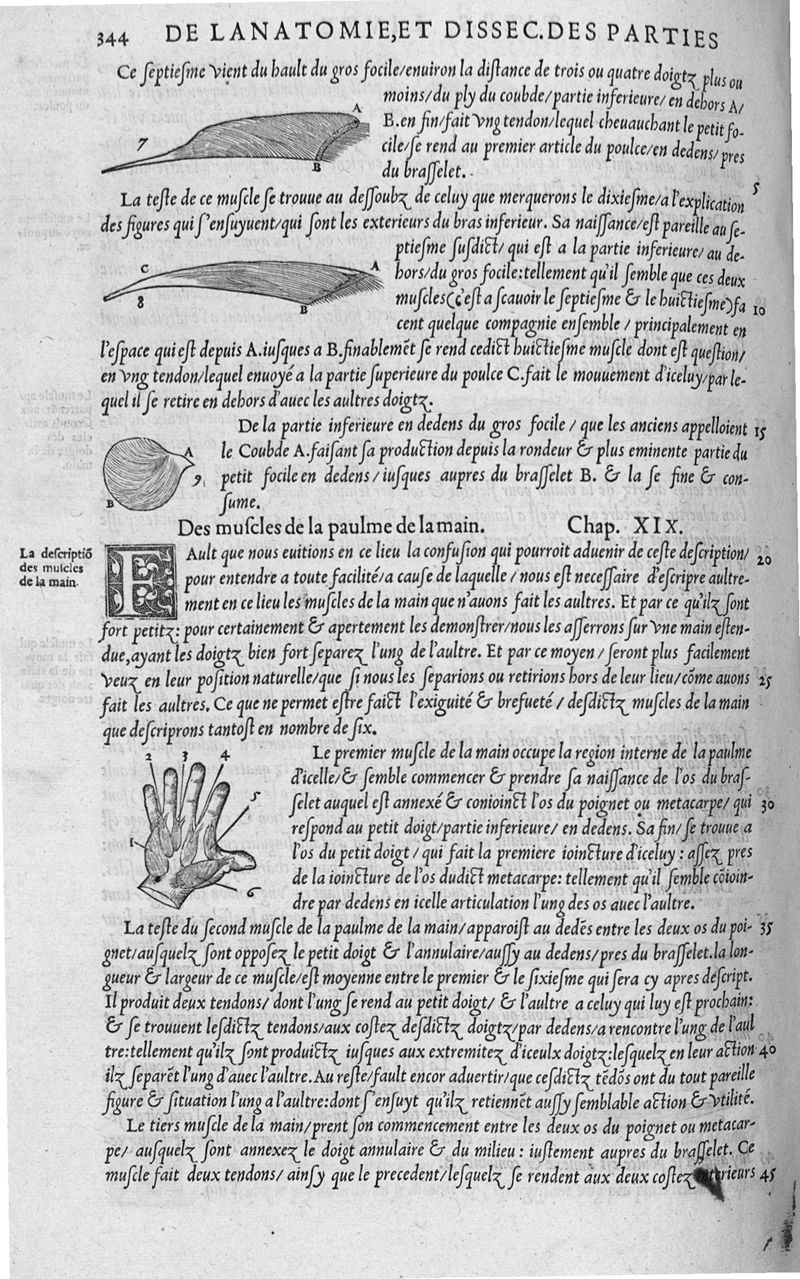 344 DE LANATOMIE,ET DISSEC.DES PARTIES
Ce septiesme vient du hault du gros focile/enuiron la distance de trois ou quatre doigtz plus ou
moins/du ply du coubde/partie inferieure/en dehors A/
B.en fin/fait vng tendon/lequel cheuauchant le petit fo-
cile/se rend au premier article du poulce/en dedens/pres
du brasselet.
A
7
B
La teste de ce muscle se trouue au dessoubz de celuy que merquerons le dixiesme/a l'explication
5
des figures qui s'ensuyuent/qui sont les exterieurs du bras inferieur. Sa naissance/est pareille au se-
ptiesme susdict/ qui est a la partie inferieure/au de-
hors/du gros focile:tellement qu'il semble que ces deux
muscles(c'est a scauoir le septiesme & le huictiesme)fa
10
cent quelque compagnie ensemble / principalement en
C
A
8
B
l'espace qui est depuis A.iusques a B.finablemẽt se rend cedict huictiesme muscle dont est question/
en vng tendon/lequel enuoyé a la partie superieure du poulce C.fait le mouuement d'iceluy/par le-
quel il se retire en dehors d'auec les aultres doigtz.
De la partie inferieure en dedens du gros focile / que les anciens appelloient 15
le Coubde A.faisant sa production depuis la rondeur & plus eminente partie du
petit focile en dedens / iusques aupres du brasselet B. & la se fine & con-
sume.
A
9
B
Des muscles de la paulme de la main. Chap. XIX.
La descriptiõ
des muscles
de la main.
FAult que nous euitions en ce lieu la confusion qui pourroit aduenir de ceste description/ 20
pour entendre a toute facilité/a cause de laquelle / nous est necessaire d'escripre aultre-
ment en ce lieu les muscles de la main que n'auons fait les aultres. Et par ce qu'ilz sont
fort petitz: pour certainement & apertement les demonstrer/nous les asserrons sur vne main esten-
due,ayant les doigtz bien fort separez l'ung de l'aultre. Et par ce moyen / seront plus facilement
veuz en leur position naturelle/que si nous les separions ou retirions hors de leur lieu/cõme auons 25
fait les aultres. Ce que ne permet estre faict l'exiguité & brefueté / desdictz muscles de la main
que descriprons tantost en nombre de six.
Le premier muscle de la main occupe la region interne de la paulme
d'icelle/& semble commencer & prendre sa naissance de l'os du bras-
selet auquel est annexé & conioinct l'os du poignet ou metacarpe/ qui 30
respond au petit doigt/partie inferieure/ en dedens. Sa fin/ se trouue a
l'os du petit doigt / qui fait la premiere ioincture d'iceluy : assez pres
de la ioincture de l'os dudict metacarpe: tellement qu'il semble cõioin-
dre par dedens en icelle articulation l'ung des os auec l'aultre.
2 3 4
5
1
6
La teste du second muscle de la paulme de la main/apparoist au dedẽs entre les deux os du poi- 35
gnet/ausquelz sont opposez le petit doigt & l'annulaire/aussy au dedens/pres du brasselet.la lon-
gueur & largeur de ce muscle/est moyenne entre le premier & le sixiesme qui sera cy apres descript.
Il produit deux tendons/ dont l'ung se rend au petit doigt/ & l'aultre a celuy qui luy est prochain:
& se trouuent lesdictz tendons/aux costez desdictz doigtz/par dedens/a rencontre l'ung de l'aul
tre:tellement qu'ilz sont produictz iusques aux extremitez d'iceulx doigtz:lesquelz en leur action 40
ilz separẽt l'ung d'auec l'aultre. Au reste/fault encor aduertir/que cesdictz tẽdõs ont du tout pareille
figure & situation l'ung a l'aultre:dont s'ensuyt qu'ilz retiennẽt aussy semblable action & vtilité.
Le tiers muscle de la main/prent son commencement entre les deux os du poignet ou metacar-
pe/ ausquelz sont annexez le doigt annulaire & du milieu : iustement aupres du brasselet. Ce
muscle fait deux tendons/ ainsy que le precedent/lesquelz se rendent aux deux costez interieurs 45